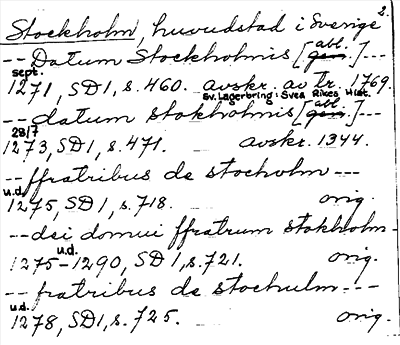 2.
Stockholm, huvudstad i Sverige
-- Datum Stockholmis [gen. abl.] ---
sept.
1271, SD1, s. 460. avskr. av tr. 1769.
Sv. Lagerbring Svea Rikes Hist.
-- datum stokholmis [gen. abl.] ---
28/7
1273, SD1, s. 471. avskr. 1344.
-- ffratribus de stocholm ---
u.d.
1275, SD1, s. 718. orig.
-- dei domui ffratrum stokholm -
u.d.
1275-1290, SD1, s. 721. orig.
-- fratribus de stochulm ---
u.d.
1278, SD1, s. 725. orig.